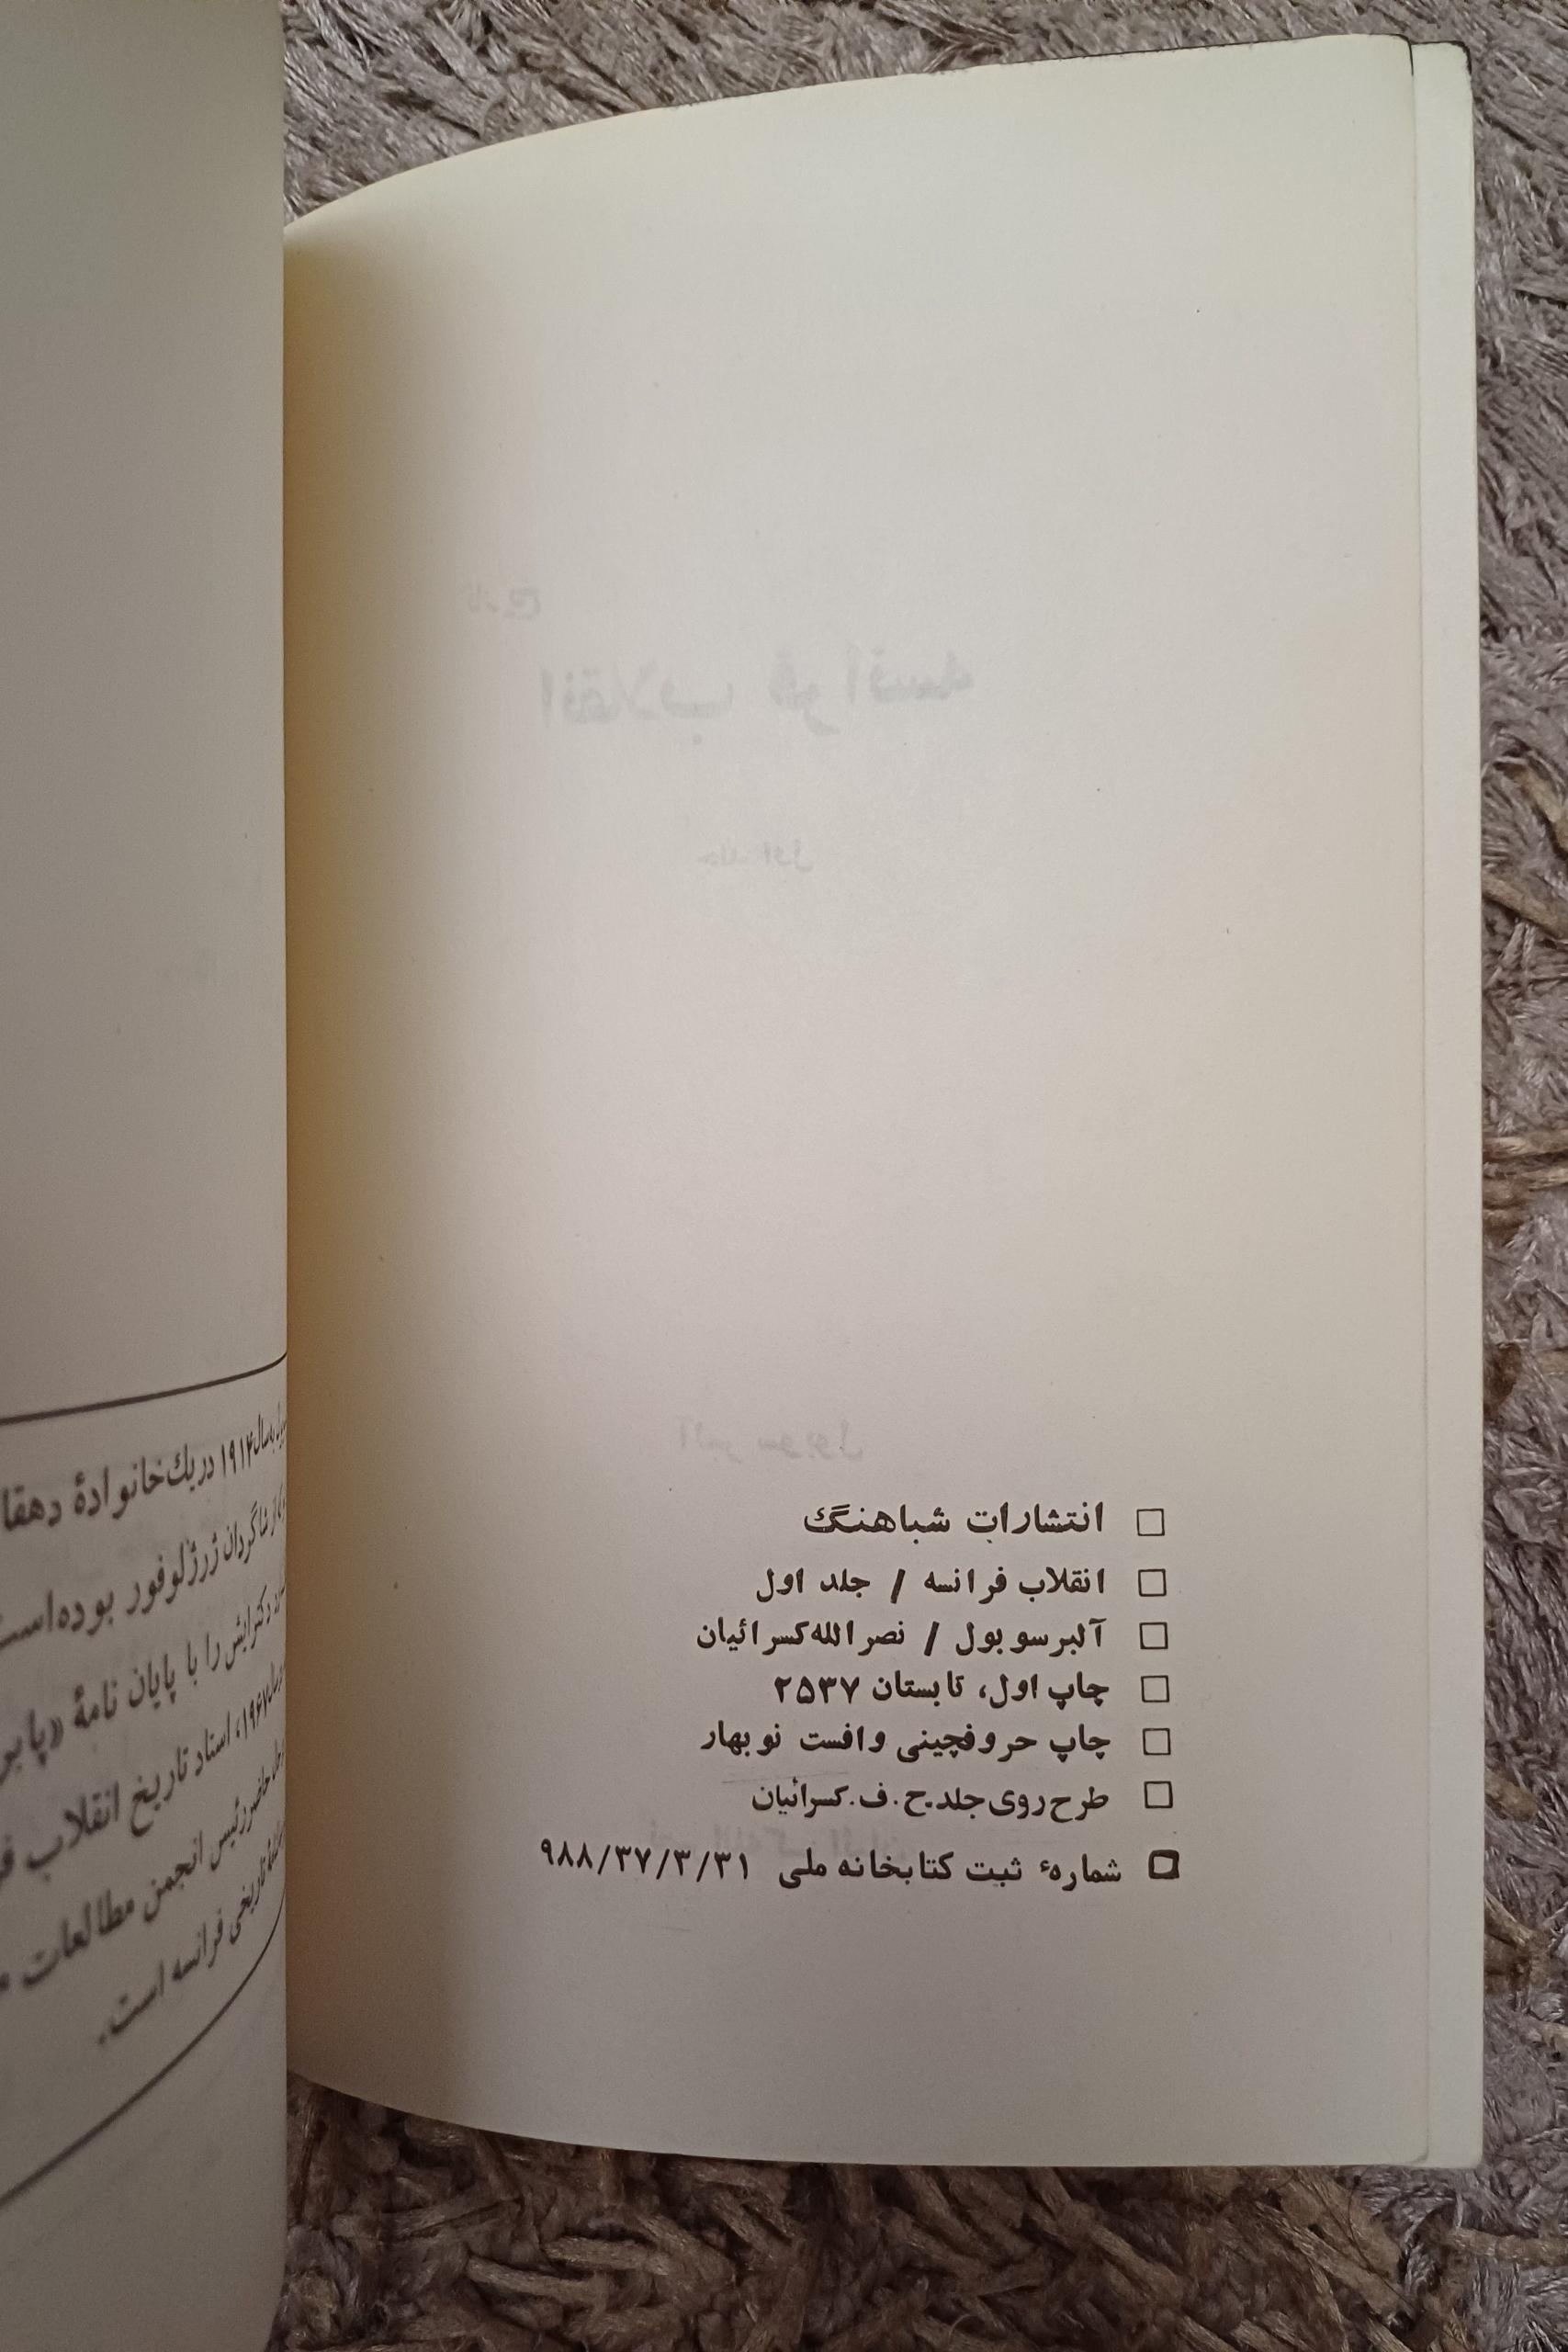 انتشارات شباهنگ
انقلاب فرانسه / جلد اول
آلبرسوبول / نصرالله‌کسرائیان
چاپ اول، تابستان ۲۵۳۷
چاپ حروفچینی وافست نوبهار
طرح‌روی‌جلد.ح.ف.کسرائیان
شمارهٔ ثبت کتابخانه ملی ۹۸۸/۳۷/۳/۳۱
سال۱۹۱۴ دریك‌خانوادهٔ
شاگردان ژرژلوفور بوده‌است
دکترایش را با پایان نامهٔ
۱۹۶۷، استاد تاریخ انقلاب
حاضررئیس انجمن مطالعات
تاریخی فرانسه است.
تاریخ
انقلاب فرانسه
جلد اول
آلبر سوبول